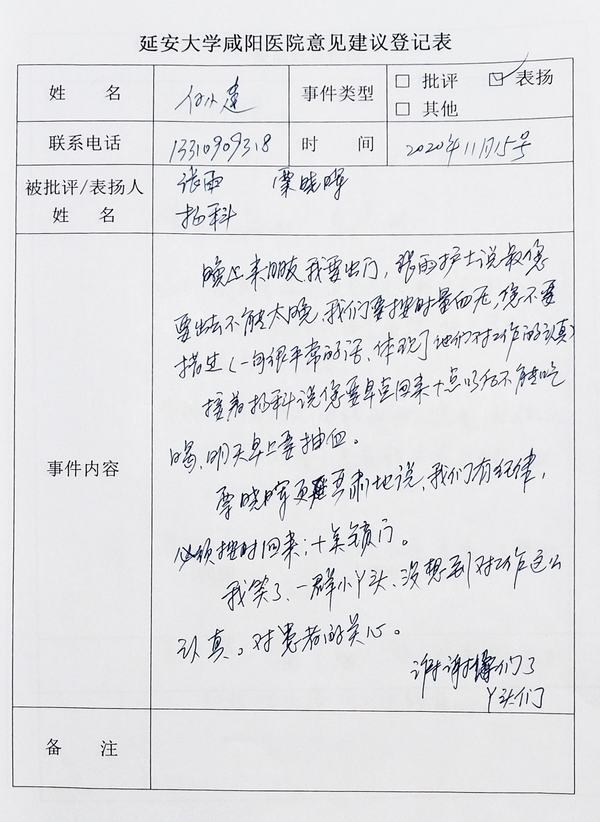 延安大学咸阳医院意见建议登记表
姓 名 何小建 事件类型 □ 批评 ☑ 表扬
□ 其他
联系电话 13310909318 时 间 2020年11月15号
被批评/表扬人 姓 名 张雨 栗晓晖
杨科
事件内容
晚上来朋友,我要出门,张雨护士说最您
要出去不能太晚,我们要按时量血压,您不要
错过(一句很平常的话、体现了她们对工作的认真)
接着杨科说您要早点回来十点以后不能吃
喝、明天早上要抽血。
栗晓晖更严肃地说,我们有纪律,
必须按时回来;十点锁门。
我笑了、一群小丫头、没想到对工作这么
认真。对患者的关心。
谢谢你们了
丫头们
备 注